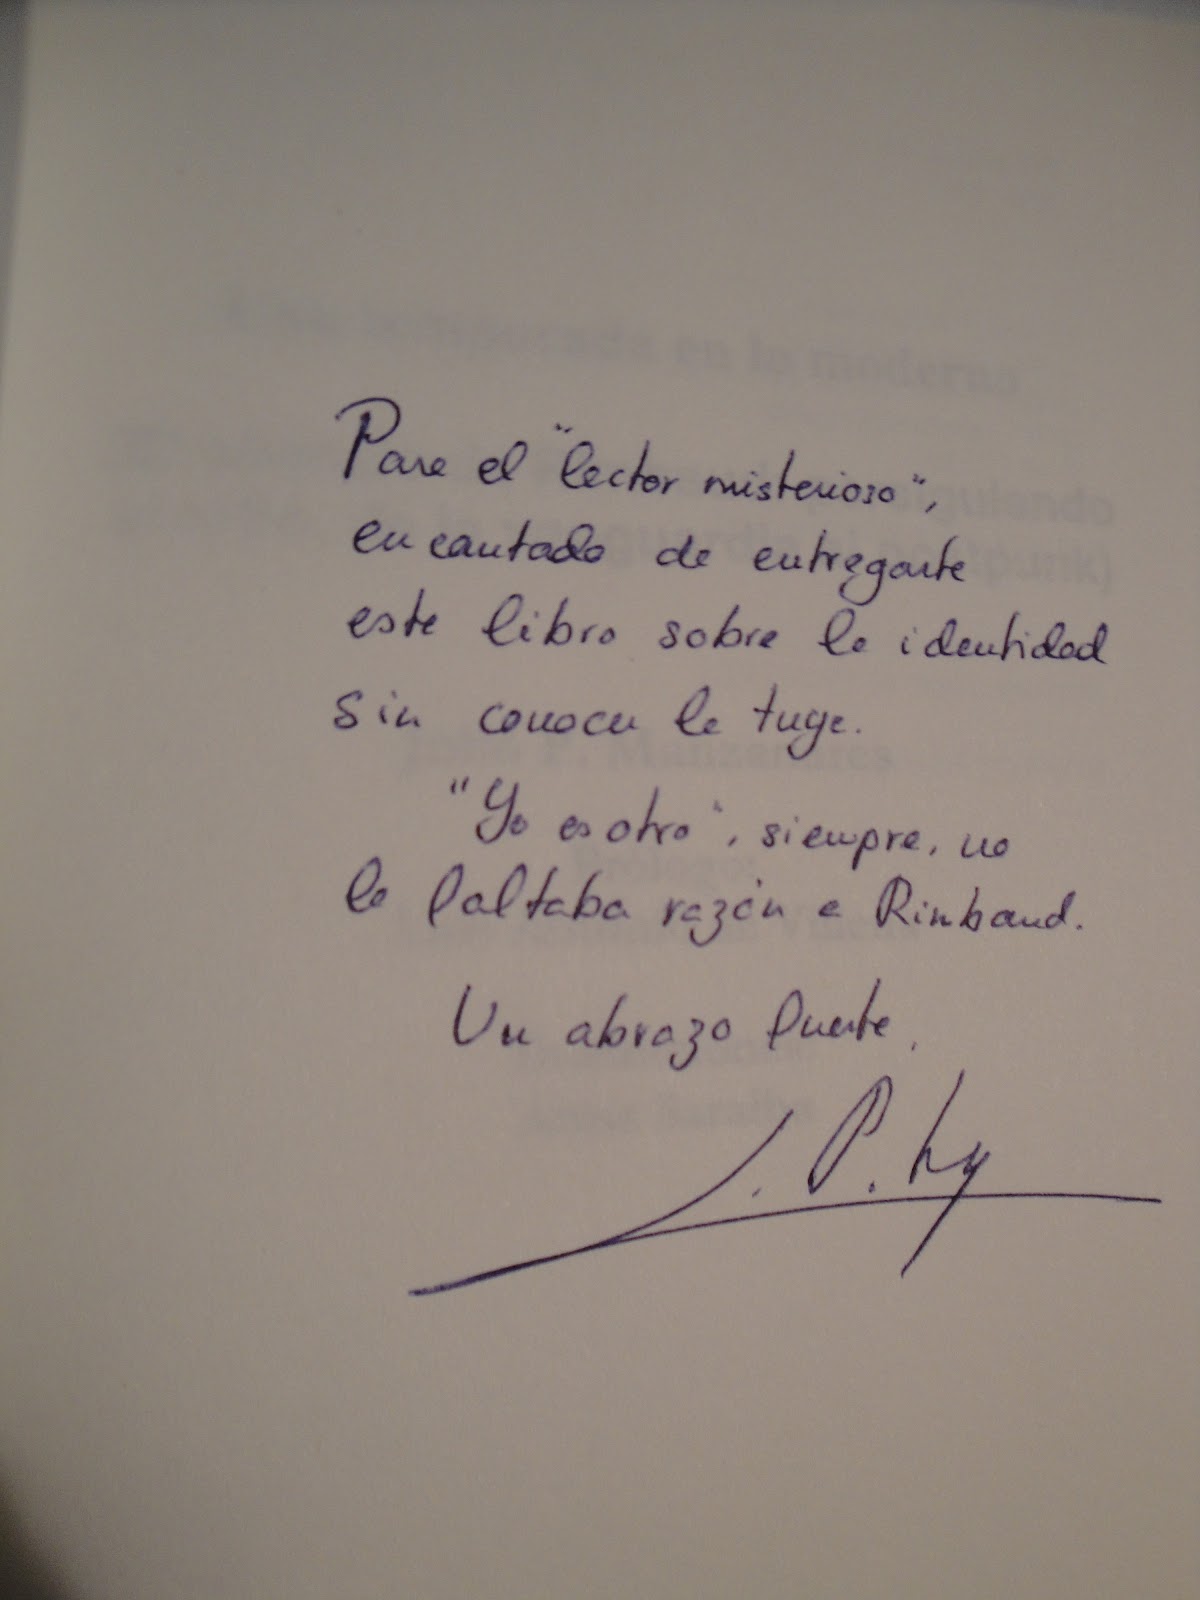 Una temporada en lo moderno
Para el "lector misterioso",
encantado de entregarte
este libro sobre la identidad
sin conocer la tuya.
"Yo es otro", siempre, no
le faltaba razón a Rinbaud.
Un abrazo fuerte.
J. P.